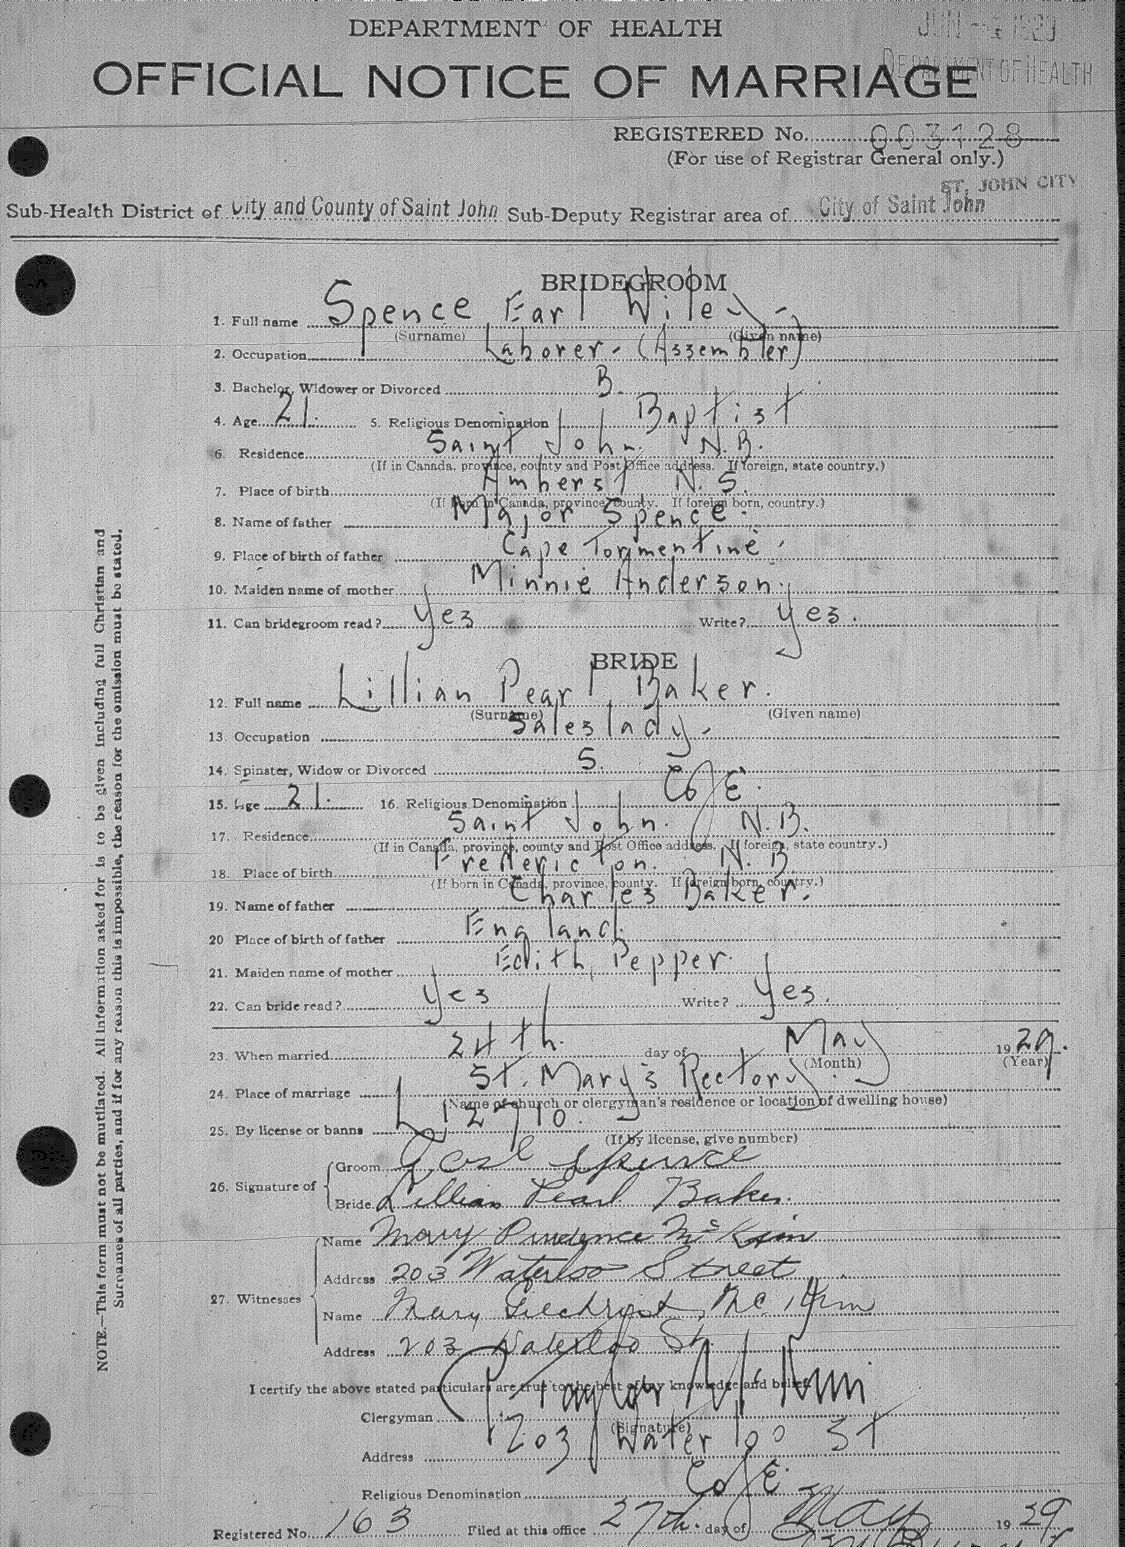 JUN -4 1929
DEPARTMENT OF HEALTH
DEPARTMENT OF HEALTH
OFFICIAL NOTICE OF MARRIAGE
REGISTERED No. 003128
(For use of Registrar General only.)
ST. JOHN CITY
Sub-Health District of City and County of Saint John Sub-Deputy Registrar area of City of Saint John
BRIDEGROOM
1. Full name Spence Earl Wiley
(Surname) (Given name)
2. Occupation Laborer - (Assembler)
3. Bachelor, Widower or Divorced B.
4. Age 21. 5. Religious Denomination Baptist
6. Residence Saint John. N.B.
(If in Canada, province, county and Post Office address. If foreign, state country.)
7. Place of birth Amherst N.S.
(If born in Canada, province, county. If foreign born, country.)
8. Name of father Major Spence.
9. Place of birth of father Cape Tormentine.
10. Maiden name of mother Minnie Anderson.
11. Can bridegroom read? Yes Write? Yes.
BRIDE
12. Full name Lillian Pearl Baker.
(Surname) (Given name)
13. Occupation Saleslady.
14. Spinster, Widow or Divorced S.
15. Age 21. 16. Religious Denomination C of E.
17. Residence Saint John. N.B.
(If in Canada, province, county and Post Office address. If foreign, state country.)
18. Place of birth Fredericton. N.B
(If born in Canada, province, county. If foreign born, country.)
19. Name of father Charles Baker.
20 Place of birth of father England.
21. Maiden name of mother Edith Pepper.
22. Can bride read? Yes Write? Yes.
23. When married 24th. day of May 1929.
(Month) (Year)
24. Place of marriage St. Mary's Rectory.
(Name of church or clergyman's residence or location of dwelling house)
25. By license or banns L 12710.
(If by license, give number)
26. Signature of Groom Earl Spence
Bride Lillian Pearl Baker.
27. Witnesses Name Mary Prudence McKim
Address 203 Waterloo Street
Name Mary Gilchrist McKim
Address 203 Waterloo St
I certify the above stated particulars are true to the best of my knowledge and belief.
Clergyman Taylor McKim
(Signature)
Address 203 Waterloo St
Religious Denomination C of E.
Registered No. 163 Filed at this office 27th. day of May 1929
NOTE.—This form must not be mutilated. All information asked for is to be given including full Christian and
Surnames of all parties, and if for any reason this is impossible, the reason for the omission must be stated.